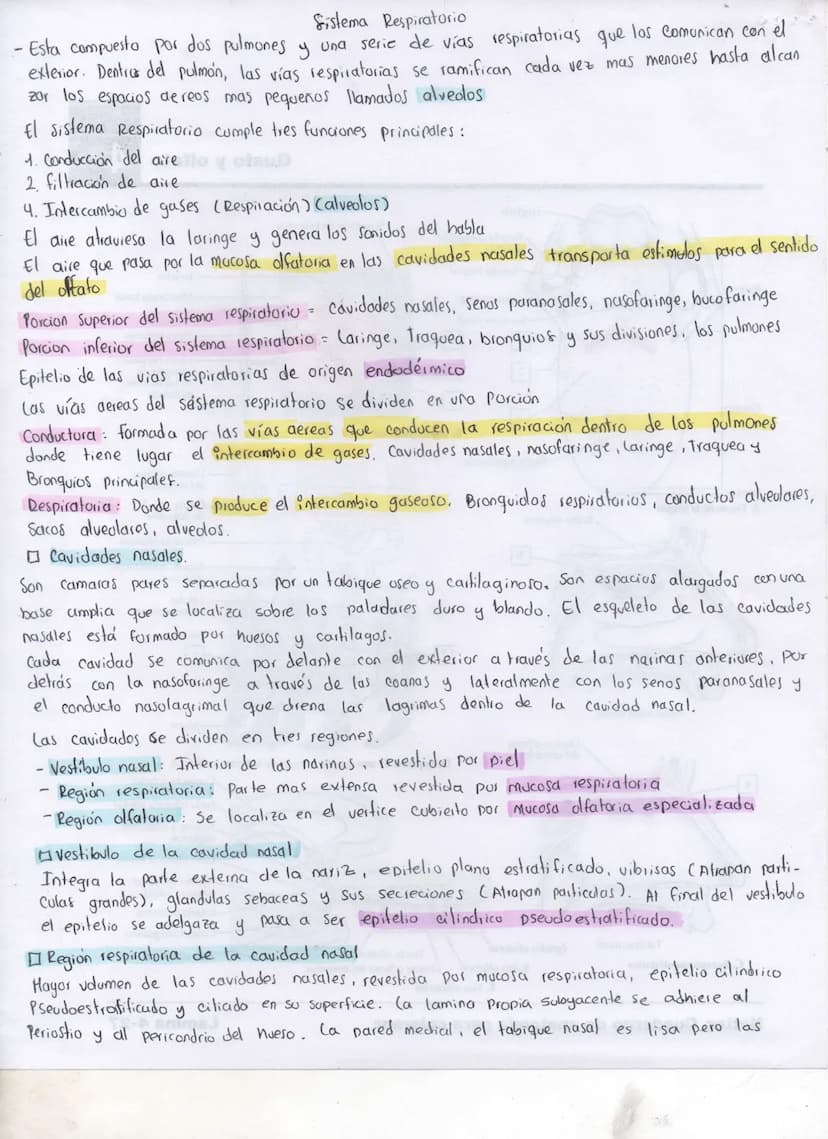 Sistema Respiratorio
- Esta compuesto por dos pulmones y una serie de vías respiratorias que los comunican con el
exterior. Dentro del pulmón, las vías respiratorias se ramifican cada vez mas menores hasta alcan
zar los espacios aereos mas pequeños llamados alveolos
El sistema Respiratorio cumple tres funciones principales:
1. Conducción del aire
2. filtración de aire
4. Intercambio de gases (Respiración) (alveolos)
El aire atraviesa la laringe y genera los sonidos del habla
El aire que pasa por la mucosa olfatoria en las cavidades nasales transporta estimulos para el sentido
del olfato
Porcion superior del sistema respiratorio = cavidades nasales, senos paranasales, nasofaringe, bucofaringe
Porcion inferior del sistema respiratorio = Laringe, Traquea, bronquios y sus divisiones, los pulmones
Epitelio de las vias respiratorias de origen endodérmico
Las vías aereas del sistema respiratorio se dividen en una Porción
Conductora: formada por las vías aereas que conducen la respiración dentro de los pulmones
donde tiene lugar el intercambio de gases. Cavidades nasales, nasofaringe, Laringe, Traquea y
Bronquios principales.
Respiratoria: Donde se produce el intercambio gaseoso. Bronquiolos respiratorios, conductos alveolares,
Sacos alveolares, alveolos.
□ Cavidades nasales.
Son camaras pares separadas por un tabique oseo y cartilaginoso. Son espacios alargados con una
base amplia que se localiza sobre los paladares duro y blando. El esqueleto de las cavidades
nasales está formado por huesos y cartilagos.
Cada cavidad se comunica por delante con el exterior a través de las narinas anteriores, por
detrás con la nasofaringe a través de las coanas y lateralmente con los senos paranasales y
el conducto nasolagrimal que drena las lagrimas dentro de la cavidad nasal.
Las cavidades se dividen en tres regiones.
- Vestibulo nasal: Interior de las narinas, revestido por piel
- Región respiratoria: Parte mas extensa revestida por mucosa respiratoria
- Región olfatoria: Se localiza en el vertice cubierto por Mucosa olfatoria especializada
□ Vestibulo de la cavidad nasal
Integra la parte externa de la nariz, epitelio plano estratificado, vibrisas (Atrapan parti-
culas grandes), glandulas sebaceas y sus secreciones (Atrapan particulas). Al final del vestibulo
el epitelio se adelgaza y pasa a ser epitelio cilindrico pseudoestratificado.
□ Región respiratoria de la cavidad nasal
Mayor volumen de las cavidades nasales, revestida por mucosa respiratoria, epitelio cilindrico
Pseudoestratificado y ciliado en su superficie. La lamina propia subyacente se adhiere al
Periostio y al pericondrio del hueso. La pared medial, el tabique nasal es lisa pero las